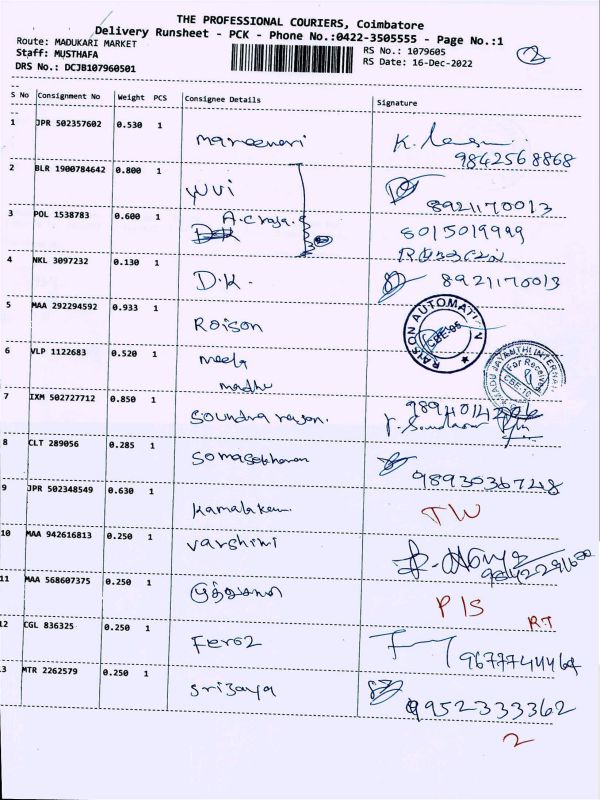 THE PROFESSIONAL COURIERS, Coimbatore
Delivery Runsheet - PCK - Phone No.:0422-3505555 - Page No.:1
Route: MADUKARI MARKET
Staff: MUSTHAFA
DRS No.: DCJB107960501
RS No.: 1079605
RS Date: 16-Dec-2022
2
S No Consignment No Weight PCS Consignee Details Signature
1 JPR 502357602 0.530 1
9842568868
2 BLR 1900784642 0.800 1 WVI
8921170013
3 POL 1538783 0.600 1 A.C raja. 8015019999
4 NKL 3097232 0.130 1 D.K. 8921170013
5 MAA 292294592 0.933 1 Roison
RAISON AUTOMATION CBE-06
6 VLP 1122683 0.520 1 meela
madhu
MADU JAYANTHI INTERNAT
For Receive
CBE-10
7 IXM 502727712 0.850 1 Soundra rajan.
8 CLT 289056 0.285 1
98930367248
9 JPR 502348549 0.630 1 TW
10 MAA 942616813 0.250 1 varshini
11 MAA 568607375 0.250 1 P/S
RT
12 CGL 836325 0.250 1 Feroz 9677744464
13 MTR 2262579 0.250 1 Srijaya
9952333362
2